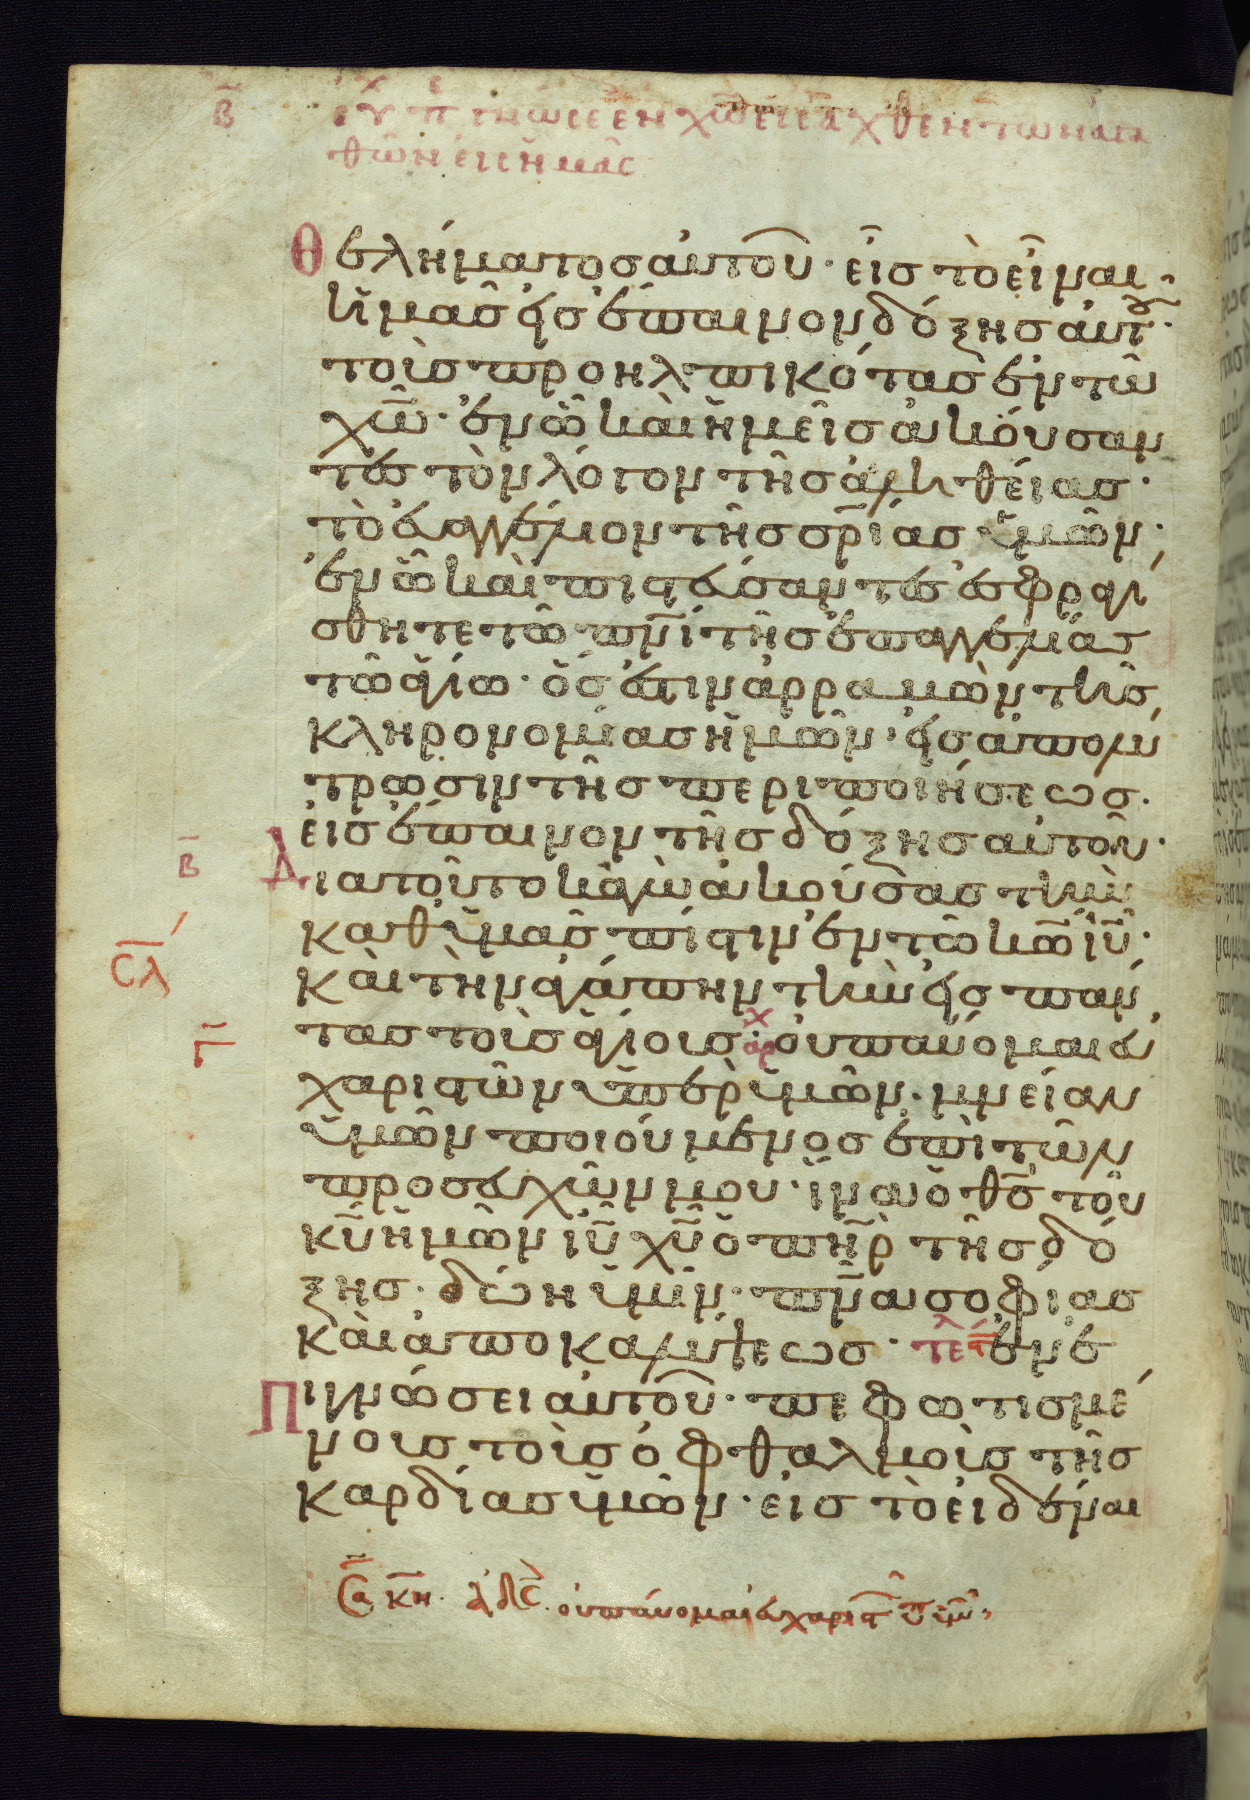 β̄ εὐχ π̄ τῆς ἐν χω̄ εἰς ἡμᾶς
θελήματος αὐτοῦ· εἰς τὸ εἶναι
ἡμᾶς εἰς ἔπαινον δόξης αὐτοῦ·
τοὺς προηλπικότας ἐν τῶ
χω̄· ἐν ὧ καὶ ἡμεῖς ἀκούσαν
τες τὸν λόγον τῆς ἀληθείας·
τὸ εὐαγγέλιον τῆς σρ̄ίας ὑμῶν·
ἐν ὧ καὶ πιστεύσαντες ἐσφραγί
σθητε τῶ πνῑ τῆς ἐπαγγελίας
τῶ ἁγίω· ὅς ἐστιν ἀρραβὼν τῆς
κληρονομίας ἡμῶν· εἰς ἀπολύ
τρωσιν τῆς περιποιήσεως·
εἰς ἔπαινον τῆς δόξης αὐτοῦ·
β̄ Διὰ τοῦτο κἀγὼ ἀκούσας τὴν
καθ ὑμᾶς πίστιν ἐν τῶ κω̄ ιῡ·
ϲλ
καὶ τὴν ἀγάπην τὴν εἰς πάν
τας τοὺς ἁγίους· αρχ οὐ παύομαι εὐ
γ̄
χαριστῶν ὑπὲρ ὑμῶν· μνείαν
ὑμῶν ποιούμενος ἐπὶ τῶν
προσευχῶν μου· ἵνα ὁ θς̄ τοῦ
κῡ ἡμῶν ιῡ χῡ ὁ πηρ̄ τῆς δό
ξης· δώη ὑμῖν· πνᾱ σοφίας
καὶ ἀποκαλύψεως· τελ ἐν ἐ
πιγνώσει αὐτοῦ· πεφωτισμέ
νους τοὺς ὀφθαλμοὺς τῆς
καρδίας ὑμῶν· εἰς τὸ εἰδέναι
Σα κη· ἀδε. οὐ παύομαι εὐχαριστ ὑπ ὑμ